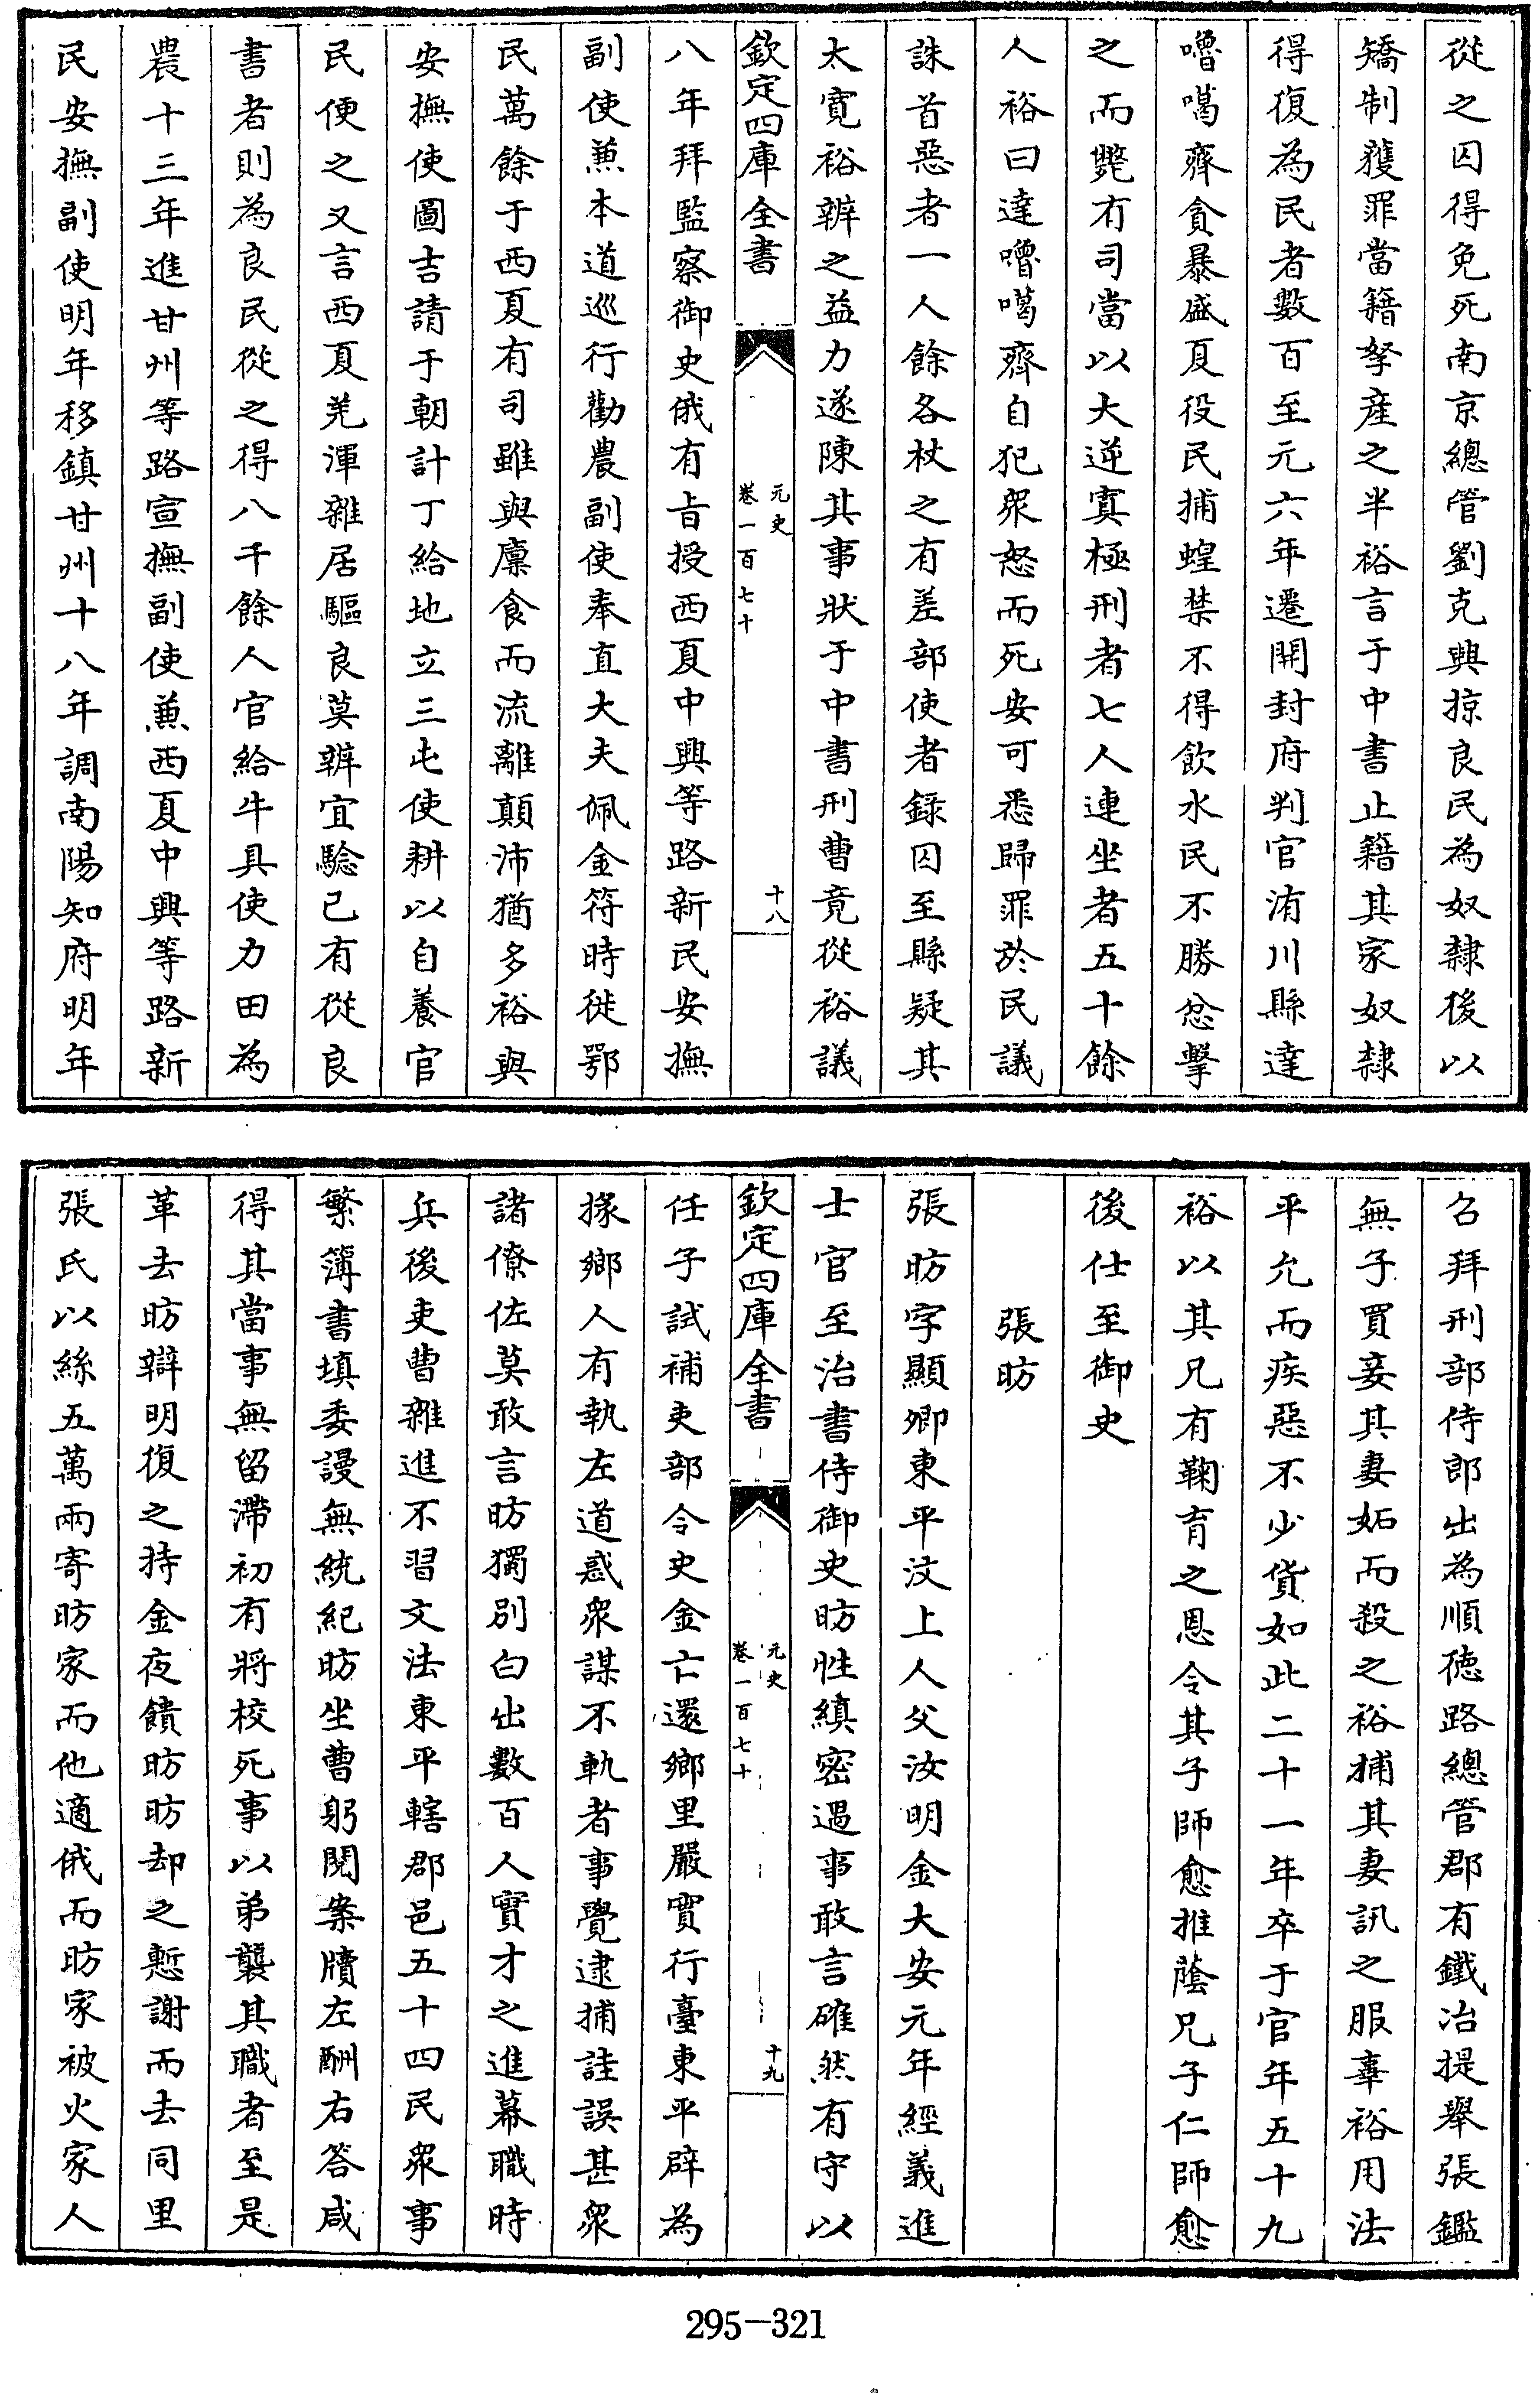 從之囚得免死南京總管劉克興掠良民為奴隸後以
矯制獲罪當籍孥產之半裕言于中書止籍其家奴隸
得復為民者數百至元六年遷開封府判官洧川縣達
嚕噶齊貪暴盛夏役民捕蝗禁不得飲水民不勝忿擊
之而斃有司當以大逆寘極刑者七人連坐者五十餘
人裕曰達嚕噶齊自犯衆怒而死安可悉歸罪於民議
誅首惡者一人餘各杖之有差部使者錄囚至縣疑其
太寛裕辨之益力遂陳其事狀于中書刑曹竟從裕議
欽定四庫全書
元史
卷一百七十
十八
八年拜監察御史俄有旨授西夏中興等路新民安撫
副使兼本道巡行勸農副使奉直大夫佩金符時徙鄂
民萬餘于西夏有司雖與廩食而流離顛沛猶多裕與
安撫使圖吉請于朝計丁給地立三屯使耕以自養官
民便之又言西夏羌渾雜居驅良莫辨宜驗已有從良
書者則為良民從之得八千餘人官給牛具使力田為
農十三年進甘州等路宣撫副使兼西夏中興等路新
民安撫副使明年移鎮甘州十八年調南陽知府明年
召拜刑部侍郎出為順徳路總管郡有鐵冶提舉張鑑
無子買妾其妻妬而殺之裕捕其妻訊之服辜裕用法
平允而疾惡不少貸如此二十一年卒于官年五十九
裕以其兄有鞠育之恩令其子師愈推蔭兄子仁師愈
後仕至御史
張昉
張昉字顯卿東平汶上人父汝明金大安元年經義進
士官至治書侍御史昉性縝密遇事敢言確然有守以
欽定四庫全書
元史
卷一百七十
十九
任子試補吏部令史金亡還鄉里嚴實行臺東平辟為
掾鄉人有執左道惑衆謀不軌者事覺逮捕詿誤甚衆
諸僚佐莫敢言昉獨別白出數百人實才之進幕職時
兵後吏曹雜進不習文法東平轄郡邑五十四民衆事
繁簿書填委謾無統紀昉坐曹躬閱案牘左酬右答咸
得其當事無留滯初有將校死事以弟襲其職者至是
革去昉辯明復之持金夜饋昉昉却之慙謝而去同里
張氏以絲五萬兩寄昉家而他適俄而昉家被火家人
295-321